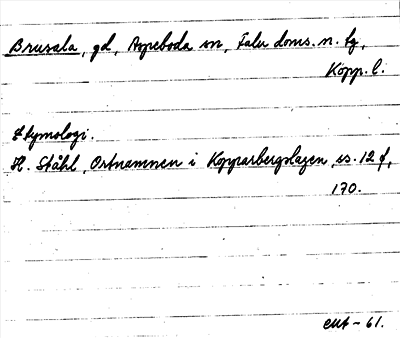 Brusala, gd, Aspeboda sn, Falu doms. n. tg,
Kopp. l.
Etymologi.
H. Ståhl, Ortnamnen i Kopparbergslagen, s. 12 f,
170.
EMT - 61.